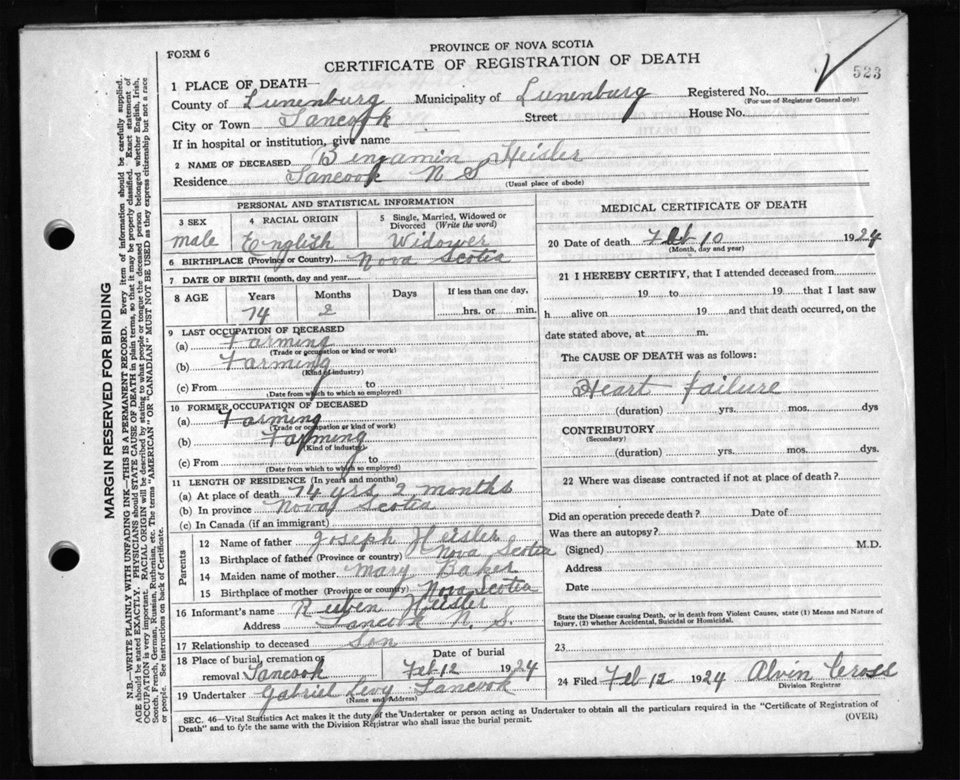 FORM 6
PROVINCE OF NOVA SCOTIA
CERTIFICATE OF REGISTRATION OF DEATH
523
1 PLACE OF DEATH
County of Lunenburg Municipality of Lunenburg Registered No.
(For use of Registrar General only)
City or Town Tancook Street House No.
If in hospital or institution, give name
2 NAME OF DECEASED Benjamin Heisler
Residence Tancook N S
(Usual place of abode)
PERSONAL AND STATISTICAL INFORMATION
3 SEX 4 RACIAL ORIGIN 5 Single, Married, Widowed or Divorced (Write the word)
male English Widower
6 BIRTHPLACE (Province or Country) Nova Scotia
7 DATE OF BIRTH (month, day and year)
8 AGE Years Months Days If less than one day,
74 2 hrs. or min.
9 LAST OCCUPATION OF DECEASED
(a) Farming
(Trade or occupation or kind or work)
(b) Farming
(Kind of industry)
(c) From to
(Date from which to which so employed)
10 FORMER OCCUPATION OF DECEASED
(a) Farming
(Trade or occupation or kind of work)
(b) Farming
(Kind of industry)
(c) From to
(Date from which to which so employed)
11 LENGTH OF RESIDENCE (In years and months)
(a) At place of death 74 yrs 2 months
(b) In province Nova Scotia
(c) In Canada (if an immigrant)
Parents
12 Name of father Joseph Heisler
13 Birthplace of father (Province or country) Nova Scotia
14 Maiden name of mother Mary Baker
15 Birthplace of mother (Province or country) Nova Scotia
16 Informant's name Reuben Heisler
Address Tancook N. S.
17 Relationship to deceased Son
18 Place of burial, cremation or removal Tancook
Date of burial
Feb 12 1924
19 Undertaker Gabriel Levy Tancook
(Name and Address)
MEDICAL CERTIFICATE OF DEATH
20 Date of death Feb 10 1924
(Month, day and year)
21 I HEREBY CERTIFY, that I attended deceased from
19 to 19 that I last saw
h alive on 19 and that death occurred, on the
date stated above, at m.
The CAUSE OF DEATH was as follows:
Heart failure
(duration) yrs. mos. dys
CONTRIBUTORY
(Secondary)
(duration) yrs. mos. dys.
22 Where was disease contracted if not at place of death?
Did an operation precede death? Date of
Was there an autopsy?
(Signed) M.D.
Address
Date
State the Disease causing Death, or in death from Violent Causes, state (1) Means and Nature of
Injury, (2) whether Accidental, Suicidal or Homicidal.
23
24 Filed Feb 12 1924 Alvin Cross
Division Registrar
SEC. 46—Vital Statistics Act makes it the duty of the Undertaker or person acting as Undertaker to obtain all the particulars required in the "Certificate of Registration of
Death" and to fyle the same with the Division Registrar who shall issue the burial permit.
(OVER)
MARGIN RESERVED FOR BINDING
N.B.—WRITE PLAINLY WITH UNFADING INK—THIS IS A PERMANENT RECORD. Every item of information should be carefully supplied.
AGE should be stated EXACTLY. PHYSICIANS should STATE CAUSE OF DEATH in plain terms, so that it may be properly classified. Exact statement of
OCCUPATION is very important. RACIAL ORIGIN will be described by stating to what people or tongue the deceased person belonged whether English, Irish,
Scotch, French, German, Russian, Ruthenian, etc. The terms "AMERICAN" OR "CANADIAN" MUST NOT BE USED as they express citizenship but not a race
or people. See instructions on back of Certificate.